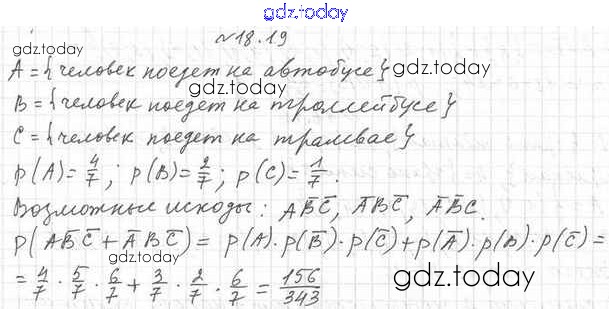 gdz.today
№18.19
gdz.today
A = {человек поедет на автобусе} gdz.today
gdz.today
B = {человек поедет на троллейбусе}
C = {человек поедет на трамвае}
p(A)=4/7; p(B)=2/7; p(C)=1/7.
Возможные исходы: AB̅C̅, A̅BC̅, A̅B̅C.
p(AB̅C̅ + A̅BC̅) = p(A)·p(B̅)·p(C̅)+p(A̅)·p(B)·p(C̅)=
= 4/7 · 5/7 · 6/7 + 3/7 · 2/7 · 6/7 = 156/343
gdz.today
gdz.today